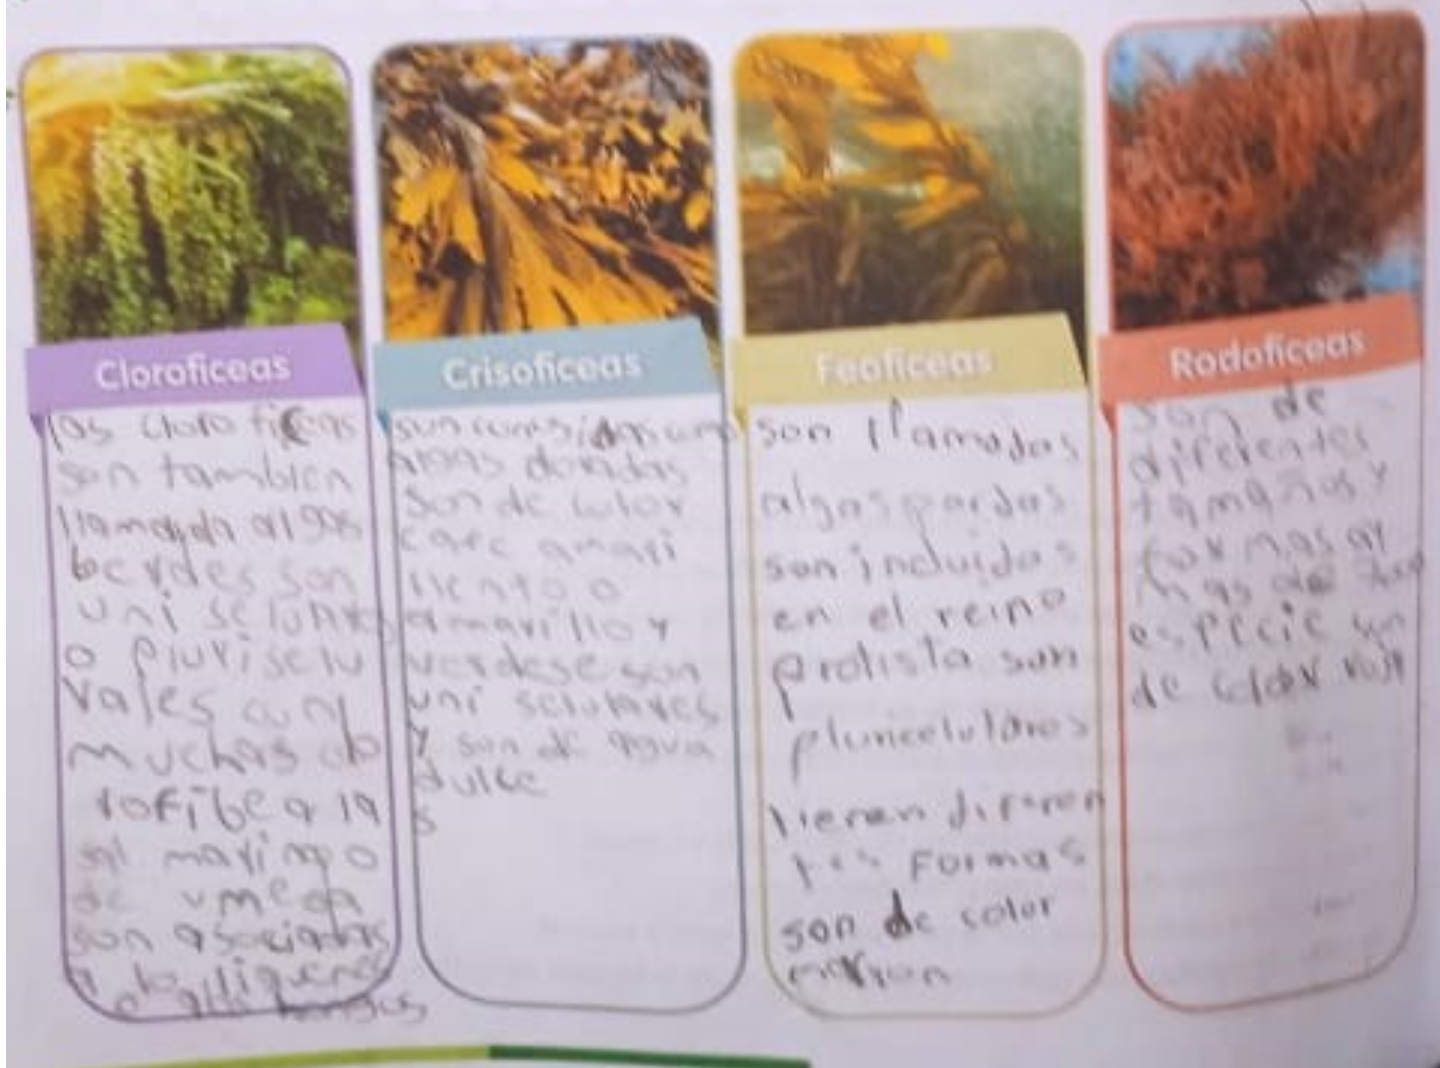 Clorofíceas
las cloro ficeas
son tambien
llamada algas
berdes son
uni selulares
o pluriselu
rales con
muchas clo
rofibe a la
sal maríno
de umeda
son asociadas
a lo liquenes
o a los hongos
Crisofíceas
son conosidas como
algas doradas
son de color
cafe amari
llento o
amarillo y
verdese son
uni selulares
y son de agua
dulce
s
Feofíceas
son llamadas
algas pardas
son incluidas
en el reino
protista son
pluricelulares
tienen diferen
tes formas
son de color
marron
Rodofíceas
son de
diferentes
tamaños y
formas ay
mas de
especie son
de color roja